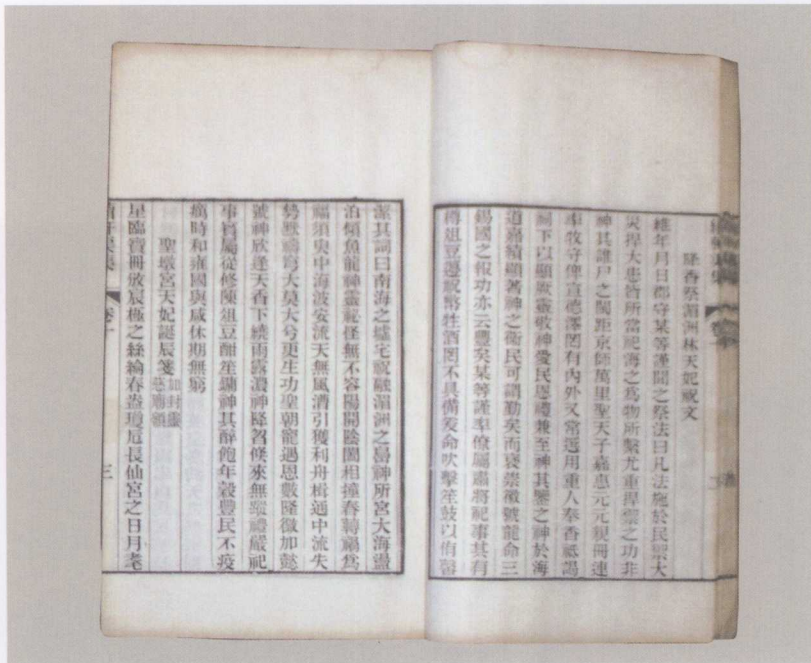 降香祭湄洲林天妃祝文
維年月日郡守某等謹聞之祭法曰凡法施於民禦大
災捍大患皆所當祀海之為物所繫尤重捍禦之功非
神其誰尸之閩距京師萬里聖天子嘉惠元元視冊連
率牧守俾宣德澤罔有內外又常選用重人奉香祗謁
祠下以顯厥靈敬神愛民恩禮兼至神其鑒之神於海
道嘉績顯著神之衛民可謂勤矣而褒崇徽號龍命三
錫國之報功亦云豐矣某等謹率僚屬肅將祀事其有
罇俎豆籩祝幣牲酒罔不具備爰命吹擊笙鼓以侑醫
潔其詞曰南海之墟宅祝融湄洲之島神所宮大海盪
泊傾魚龍神靈祕怪無不容陽開陰闔相撞舂轉禍為
福須臾中海波安流天無風漕引獲利舟楫通中流失
勢默禱穹大莫大兮更生功聖朝寵遇恩數隆徽加懿
號神欣逢天香下繞雨露濃神降翛倏來無蹤禮嚴祀
事賓屬從修陳俎豆酣笙鏞神其醉飽年穀豐民不疫
癘時和雍國與咸休期無窮
聖墩宮天妃誕辰箋
加封靈
慈廟額
星臨寶冊放宸極之絲綸春盎瑤卮長仙宮之日月老
卷十
三